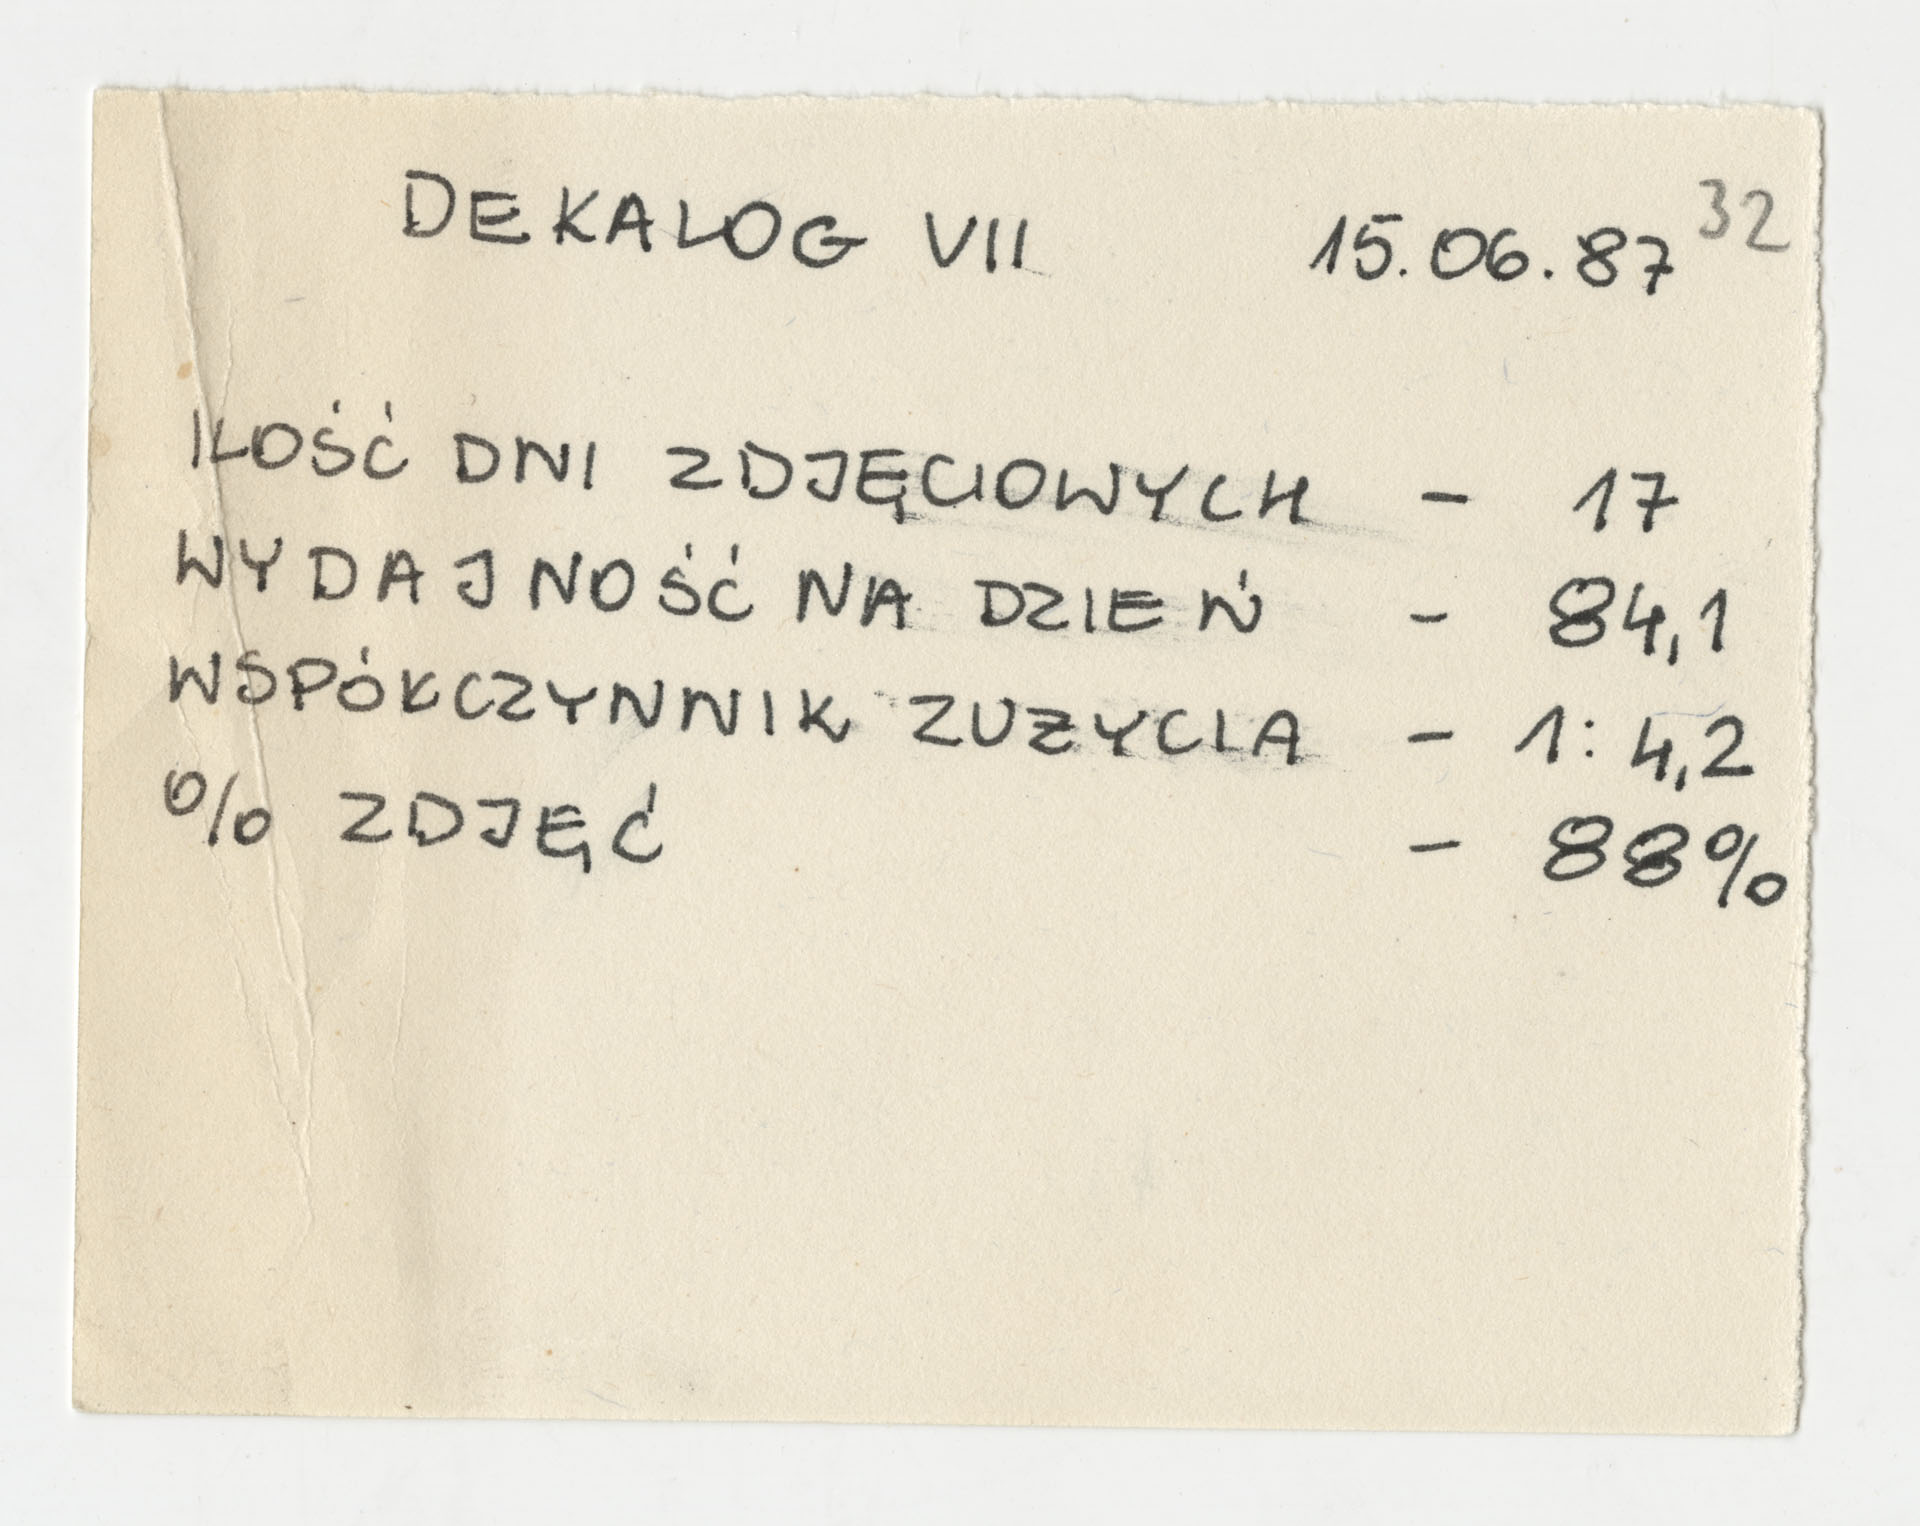 32
DEKALOG VII 15.06.87
ILOŚĆ DNI ZDJĘCIOWYCH - 17
WYDAJNOŚĆ NA DZIEŃ - 84,1
WSPÓŁCZYNNIK ZUŻYCIA - 1:4,2
% ZDJĘĆ - 88%